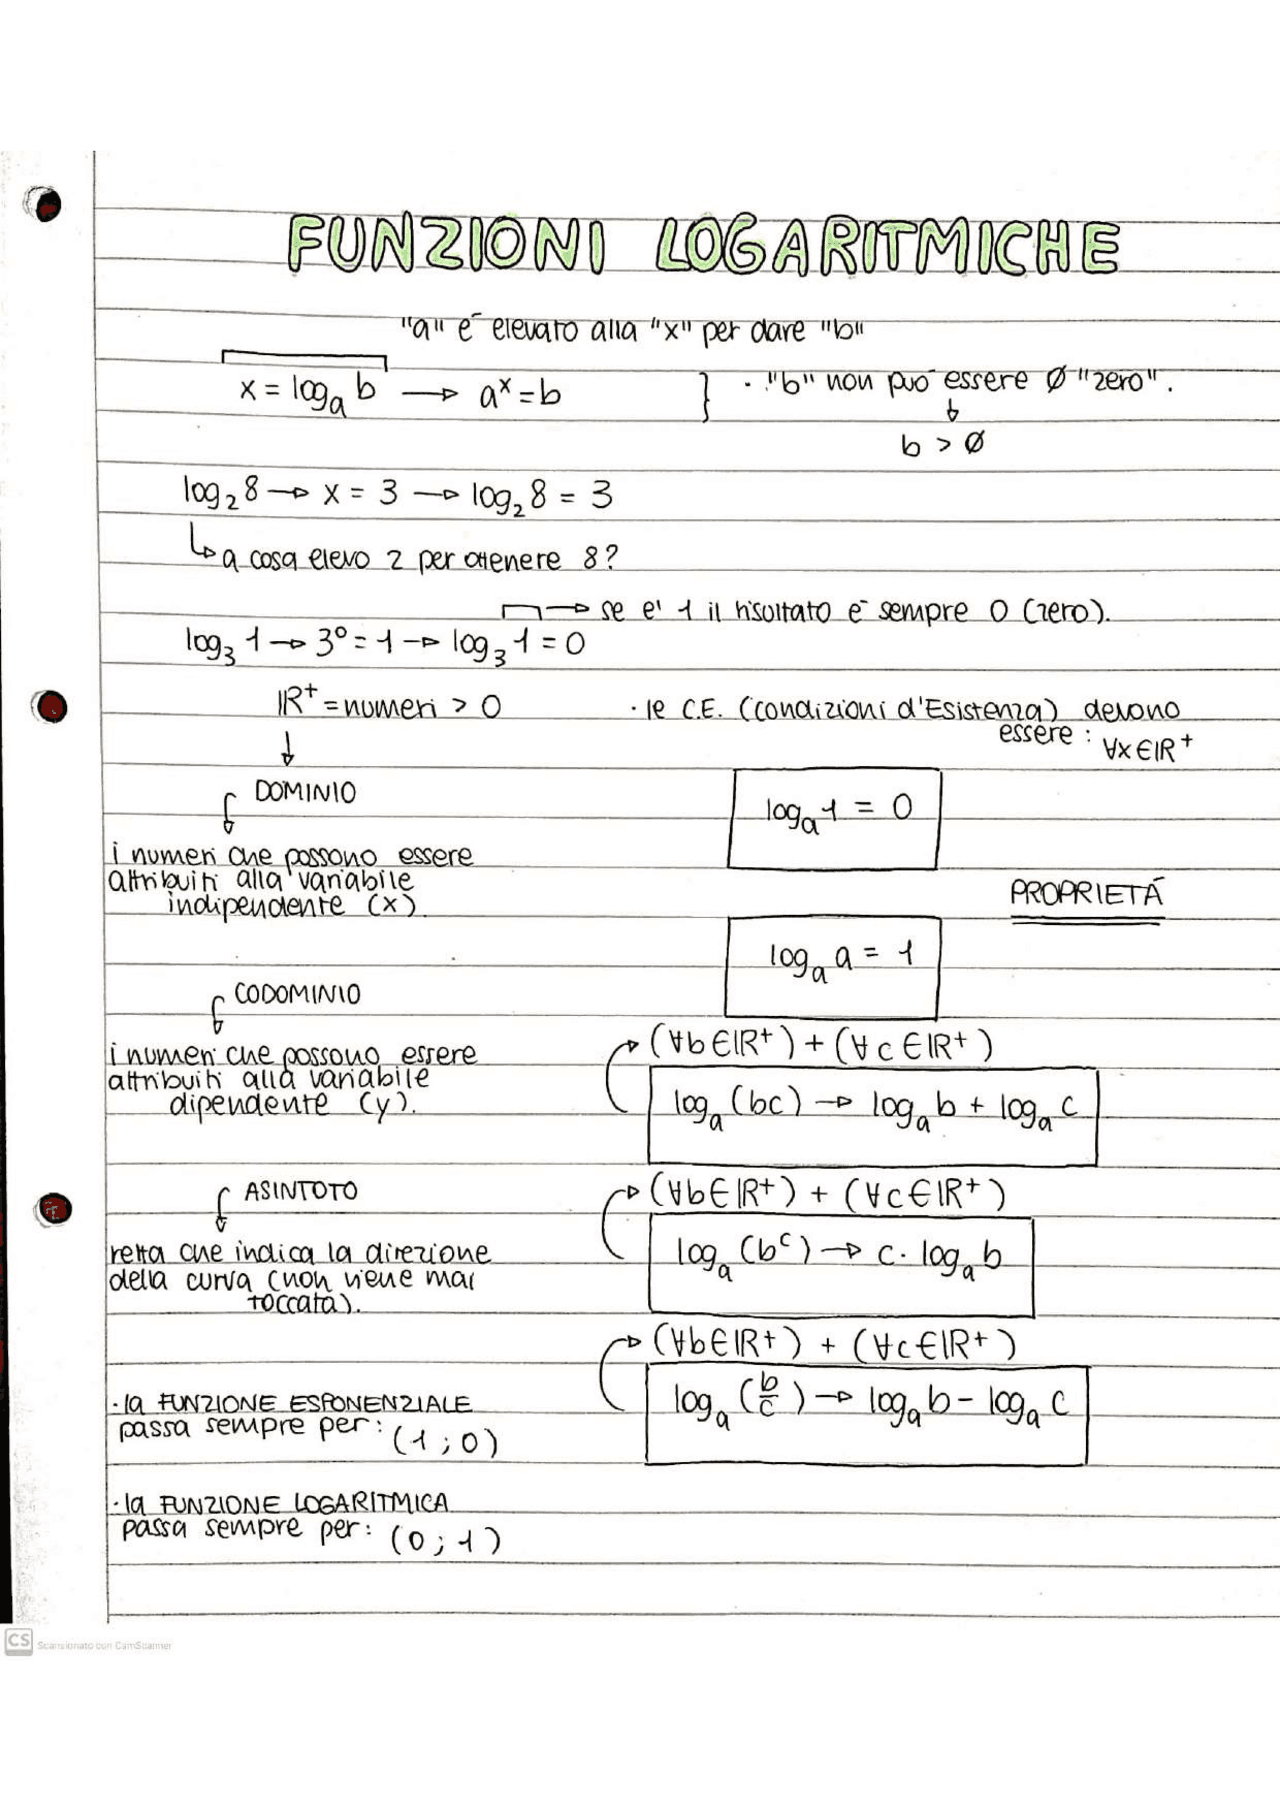 FUNZIONI LOGARITMICHE
"a" è elevato alla "x" per dare "b"
x = logₐ b → aˣ = b
· "b" non può essere Ø "zero".
b > Ø
log₂ 8 → x = 3 → log₂ 8 = 3
a cosa elevo 2 per ottenere 8?
se e' 1 il risultato è sempre 0 (zero).
log₃ 1 → 3⁰ = 1 → log₃ 1 = 0
ℝ⁺ = numeri > 0
· le C.E. (condizioni d'Esistenza) devono
essere : ∀x∈ℝ⁺
DOMINIO
i numeri che possono essere
attribuiti alla variabile
indipendente (x).
logₐ 1 = 0
PROPRIETÁ
logₐ a = 1
CODOMINIO
i numeri che possono essere
attribuiti alla variabile
dipendente (y).
(∀b∈ℝ⁺) + (∀c∈ℝ⁺)
logₐ (bc) → logₐ b + logₐ c
ASINTOTO
retta che indica la direzione
della curva (non viene mai
toccata).
(∀b∈ℝ⁺) + (∀c∈ℝ⁺)
logₐ (bᶜ) → c · logₐ b
(∀b∈ℝ⁺) + (∀c∈ℝ⁺)
logₐ (b/c) → logₐ b - logₐ c
· la FUNZIONE ESPONENZIALE
passa sempre per: (1 ; 0)
· la FUNZIONE LOGARITMICA
passa sempre per: (0 ; 1)
CS Scansionato con CamScanner